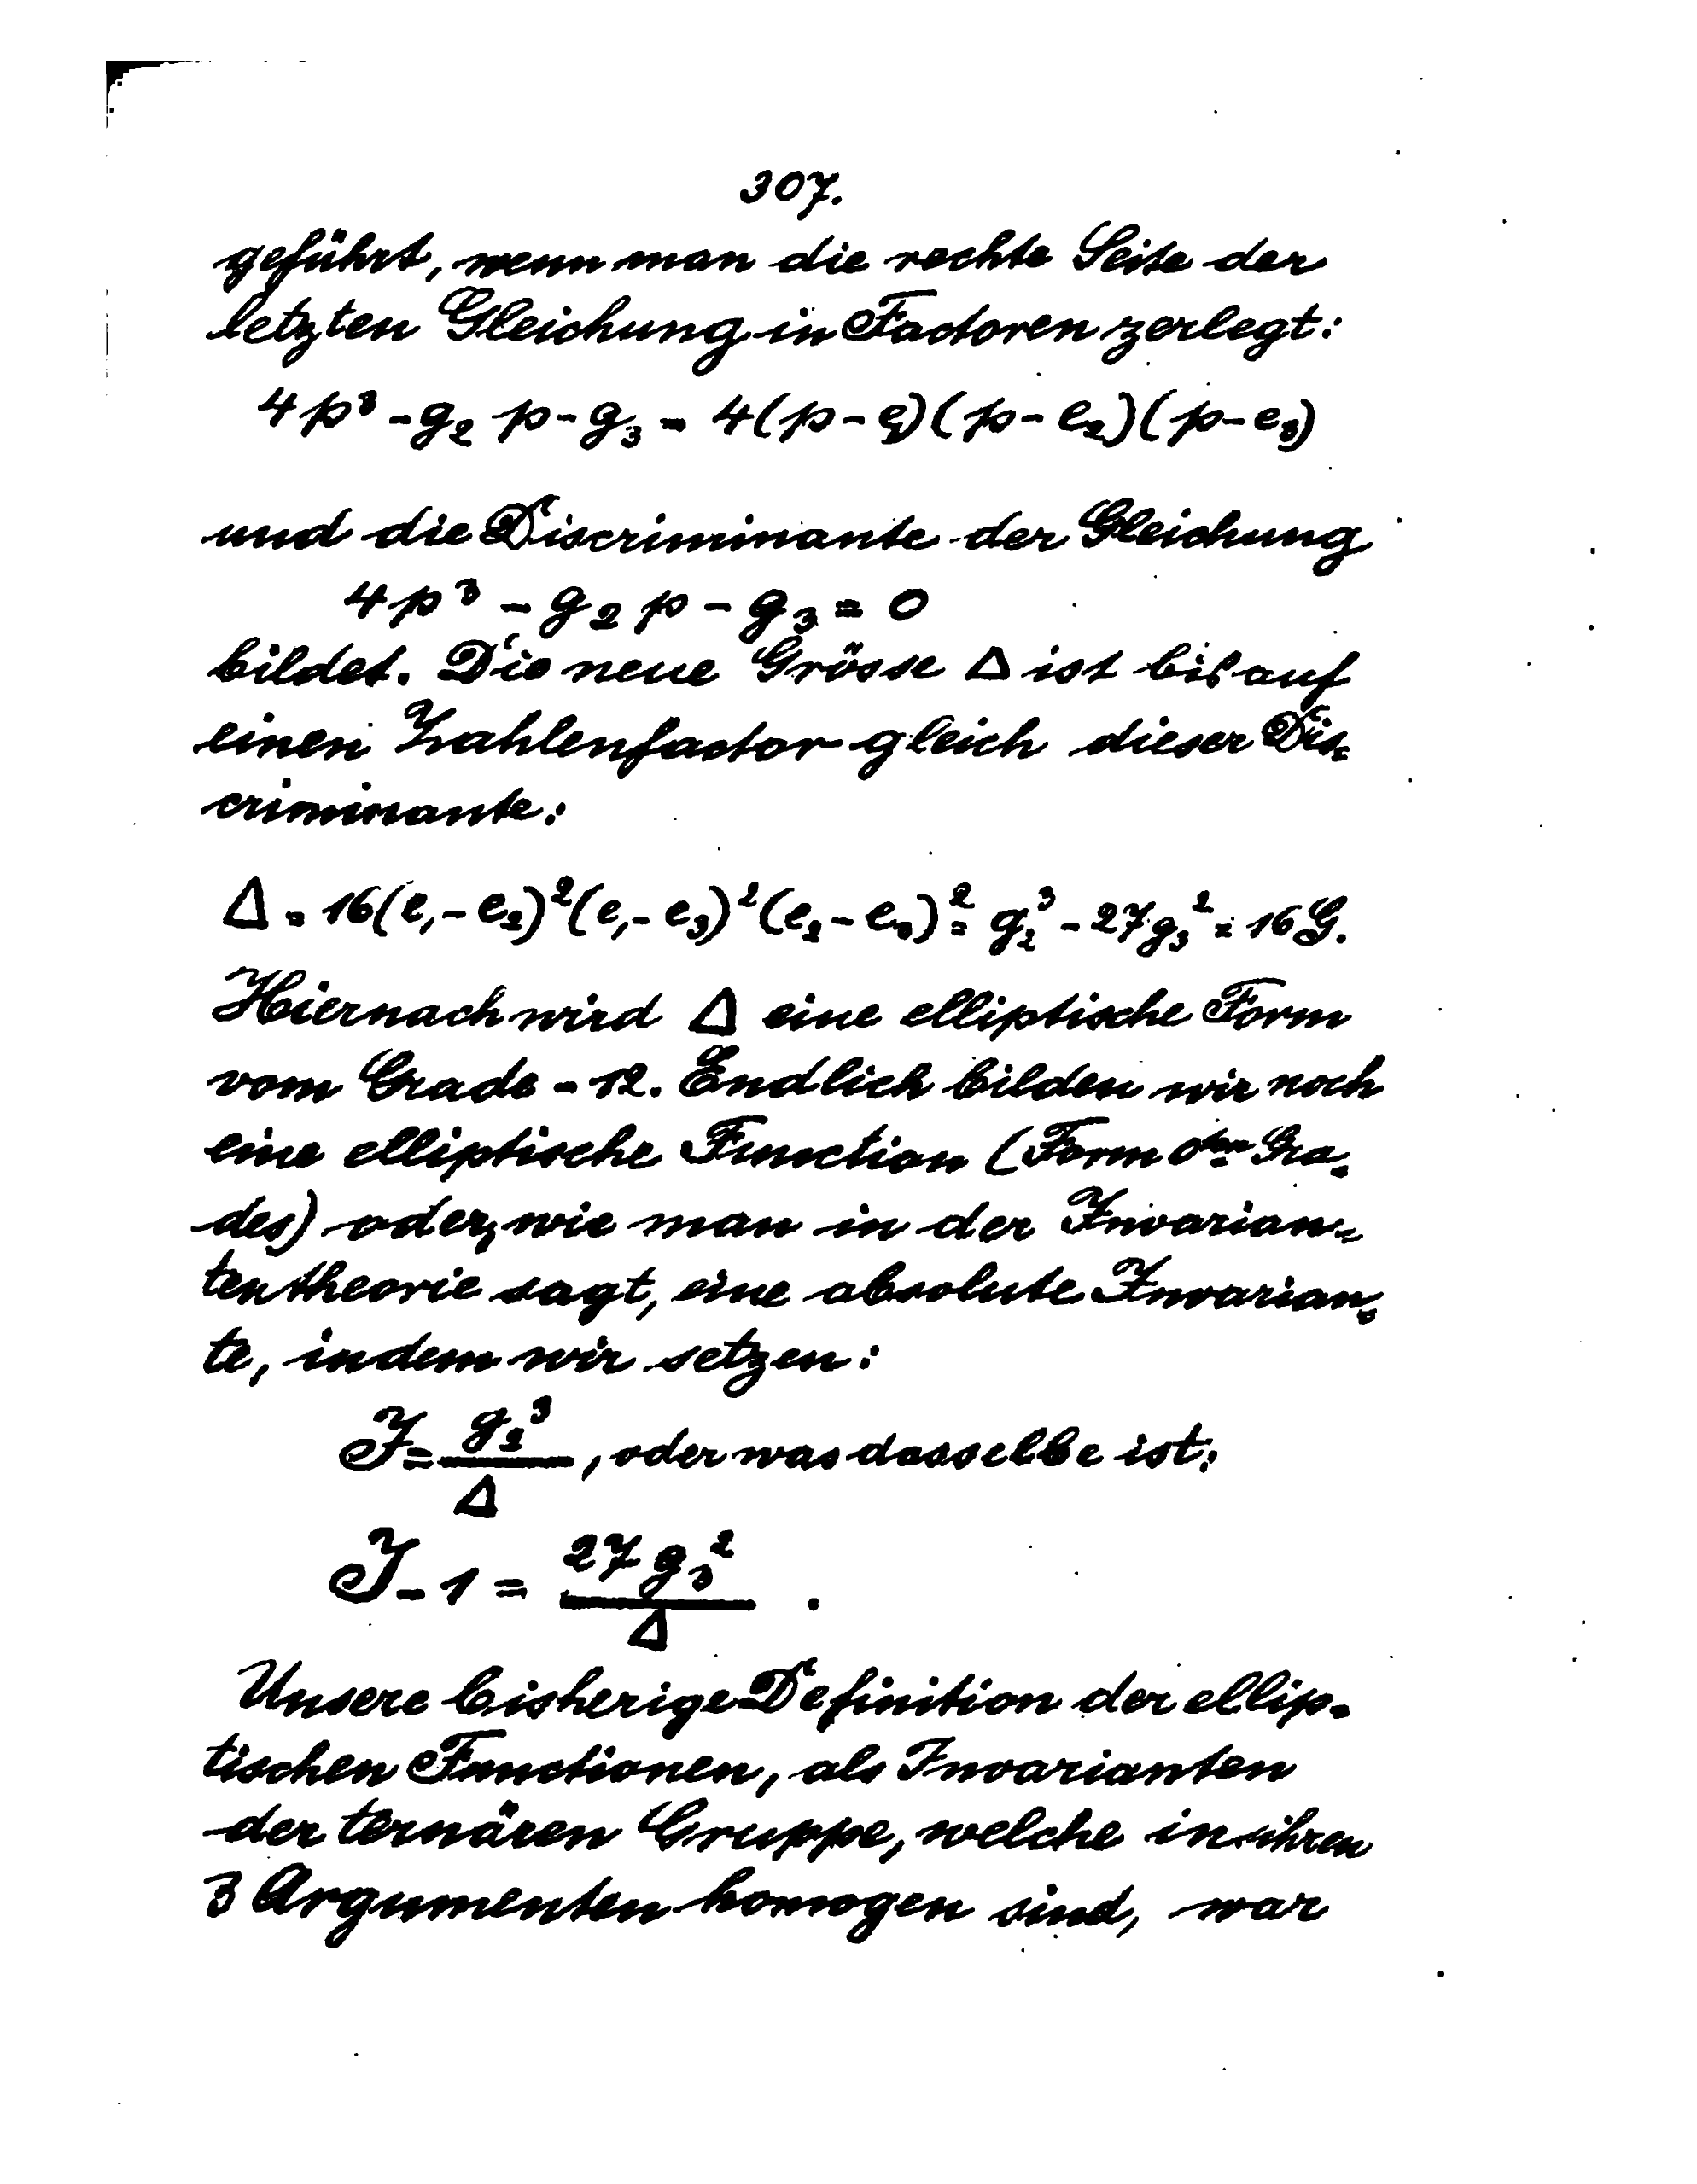 307.
geführt, wenn man die rechte Seite der
letzten Gleichung in Factoren zerlegt:
4p³ - g₂ p - g₃ = 4(p - e₁)(p - e₂)(p - e₃)
und die Discriminante der Gleichung
4p³ - g₂ p - g₃ = 0
bildet. Die neue Grösse Δ ist bis auf
einen Zahlenfactor gleich dieser Dis-
criminante:
Δ = 16(e₁ - e₂)²(e₁ - e₃)²(e₂ - e₃)² = g₂³ - 27g₃² = 16 G.
Hiernach wird Δ eine elliptische Form
vom Grade - 12. Endlich bilden wir noch
eine elliptische Function (Form 0ten Gra-
des) oder, wie man in der Invarian-
tentheorie sagt, eine absolute Invarian-
te, indem wir setzen:
J = g₂³/Δ, oder was dasselbe ist:
J - 1 = 27 g₃²/Δ.
Unsere bisherige Definition der ellip-
tischen Functionen, als Invarianten
der ternären Gruppe, welche in ihren
3 Argumenten homogen sind, war